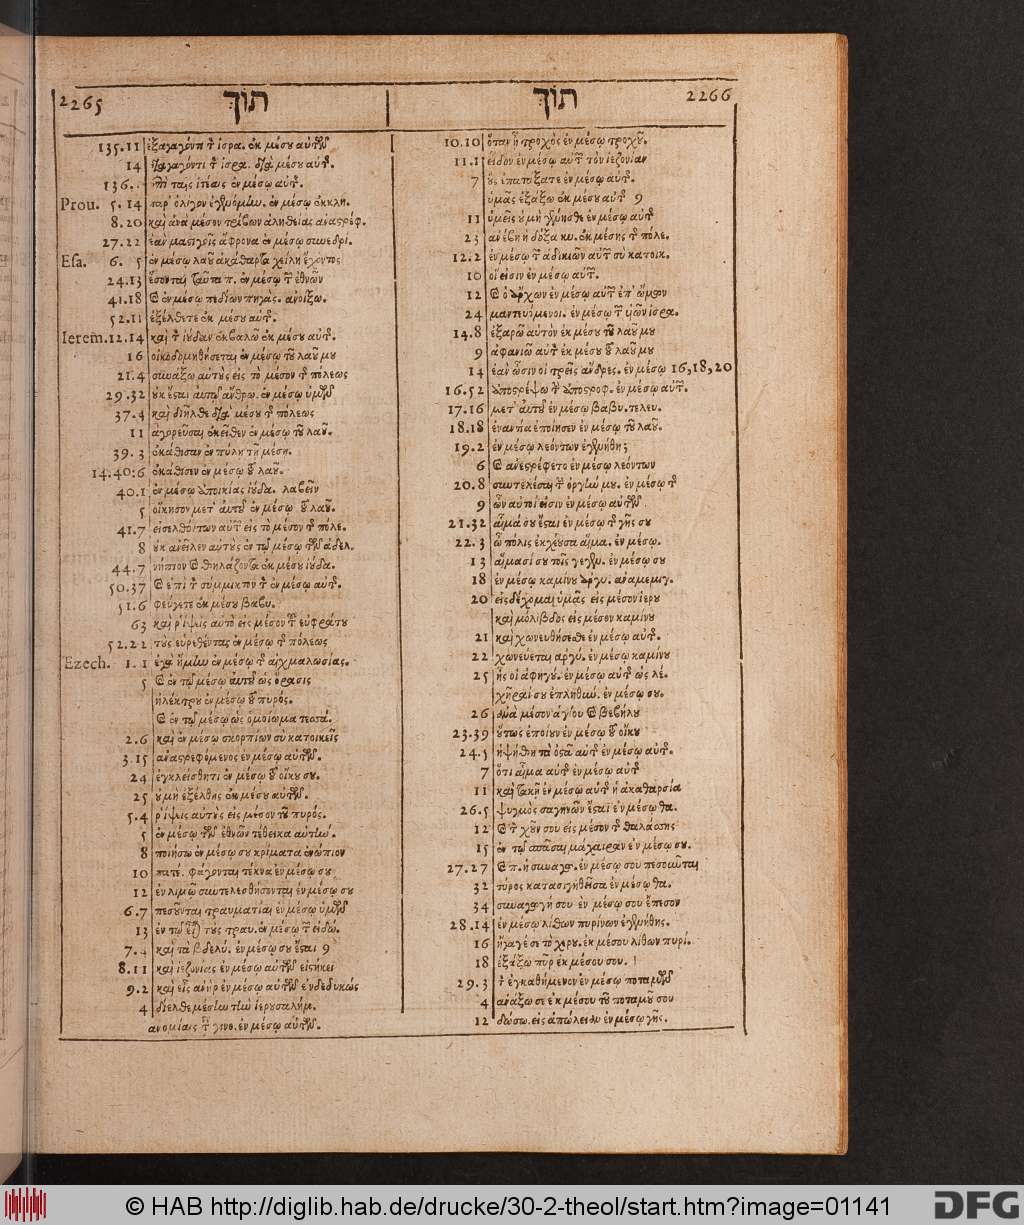 2265 תוך
135.11 ἐξαγαγόντι τὸν ἰσρα. ἐκ μέσου αὐτῶν
14 διαγαγόντι τὸν ἰσρα. διὰ μέσου αὐτῆς.
136. ἐπὶ ταῖς ἰτέαις ἐν μέσῳ αὐτῆς.
Prou. 5.14 παρ' ὀλίγον ἐγενόμην. ἐν μέσῳ ἐκκλη.
8.20 καὶ ἀνὰ μέσον τρίβων ἀληθείας ἀναστρέφ.
27.22 ἐὰν μαστιγοῖς ἄφρονα ἐν μέσῳ συνεδρί.
Esa. 6.5 ἐν μέσῳ λαοῦ ἀκάθαρτα χείλη ἔχοντος
24.13 ἔσονται ταῦτα π. ἐν μέσῳ τῶν ἐθνῶν
41.18 καὶ ἐν μέσῳ πεδίων πηγὰς. ἀνοίξω.
52.11 ἐξέλθετε ἐκ μέσου αὐτῆς.
Ierem. 12.14 καὶ τὸν ἰούδαν ἐκβαλῶ ἐκ μέσου αὐτῶν.
16 οἰκοδομηθήσεται ἐν μέσῳ τοῦ λαοῦ μου
21.4 συνάξω αὐτοὺς εἰς τὸ μέσον τῆς πόλεως
29.32 οὐκ ἔσται αὐτῷ ἄνθρω. ἐν μέσῳ ὑμῶν
37.4 καὶ διῆλθε διὰ μέσου τῆς πόλεως
11 ἀγορεῦσαι ἐκεῖθεν ἐν μέσῳ τοῦ λαοῦ.
39.3 ἐκάθισαν ἐν πύλῃ τῇ μέσῃ.
14.40:6 ἐκάθισεν ἐν μέσῳ τοῦ λαοῦ.
40.1 ἐν μέσῳ ἀποικίας ἰούδα. λαβεῖν
5 οἴκησον μετ' αὐτοῦ ἐν μέσῳ τοῦ λαοῦ.
41.7 εἰσελθόντων αὐτῶν εἰς τὸ μέσον τῆς πόλε.
8 οὐκ ἀνεῖλεν αὐτοὺς ἐν τῷ μέσῳ τῶν ἀδελ.
44.7 νήπιον καὶ θηλάζοντα ἐκ μέσου ἰούδα.
50.37 καὶ ἐπὶ τὸν σύμμικτον τὸν ἐν μέσῳ αὐτῆς.
51.6 φεύγετε ἐκ μέσου βαβυ.
63 καὶ ῥίψεις αὐτὸ εἰς μέσον τοῦ εὐφράτου
52.22 τοὺς εὑρεθέντας ἐν μέσῳ τῆς πόλεως
Ezech. 1.1 ἐγὼ ἤμην ἐν μέσῳ τῆς αἰχμαλωσίας.
5 καὶ ἐν τῷ μέσῳ αὐτοῦ ὡς ὅρασις
ἠλέκτρου ἐν μέσῳ τοῦ πυρός.
καὶ ἐν τῷ μέσῳ ὡς ὁμοίωμα τεσσά.
2.6 καὶ ἐν μέσῳ σκορπίων σὺ κατοικεῖς
3.15 ἀναστρεφόμενος ἐν μέσῳ αὐτῶν.
24 ἐγκλείσθητι ἐν μέσῳ τοῦ οἴκου σου.
25 οὐ μὴ ἐξέλθῃς ἐκ μέσου αὐτῶν.
5.4 ῥίψεις αὐτοὺς εἰς μέσον τοῦ πυρός.
5 ἐν μέσῳ τῶν ἐθνῶν τέθεικα αὐτὴν.
8 ποιήσω ἐν μέσῳ σου κρίματα ἐνώπιον
10 πατέ. φάγονται τέκνα ἐν μέσῳ σου
12 ἐν λιμῷ συντελεσθήσονται ἐν μέσῳ σου
6.7 πεσοῦνται τραυματίαι ἐν μέσῳ ὑμῶν
13 ἐν τῷ εἶναι τοὺς τραυ. ἐν μέσῳ τῶν εἰδώ.
7.4 καὶ τὰ βδελύ. ἐν μέσῳ σου ἔσται 9
8.11 καὶ ἰεζονίας ἐν μέσῳ αὐτῶν εἱστήκει
9.2 καὶ εἷς ἀνὴρ ἐν μέσῳ αὐτῶν ἐνδεδυκώς
4 δίελθε μέσην τὴν ἱερουσαλήμ.
ἀνομίαις τῶν γινο. ἐν μέσῳ αὐτῶν.
תוך 2266
10.10 ὅταν ᾖ τροχὸς ἐν μέσῳ τροχοῦ.
11.1 εἶδον ἐν μέσῳ αὐτῶν τὸν ἰεζονίαν
7 οὓς ἐπατάξατε ἐν μέσῳ αὐτῆς.
ὑμᾶς ἐξάξω ἐκ μέσου αὐτῆς 9
11 ὑμεῖς οὐ μὴ γένησθε ἐν μέσῳ αὐτῆς
23 ἀνέβη ἡ δόξα κυ. ἐκ μέσης τῆς πόλε.
12.2 ἐν μέσῳ τῶν ἀδικιῶν αὐτῶν σὺ κατοικ.
10 οἵ εἰσιν ἐν μέσῳ αὐτῶν.
12 καὶ ὁ ἄρχων ἐν μέσῳ αὐτῶν ἐπ' ὤμων
24 μαντευόμενοι. ἐν μέσῳ τῶν υἱῶν ἰσρα.
14.8 ἐξαρῶ αὐτὸν ἐκ μέσου τοῦ λαοῦ μου
9 ἀφανιῶ αὐτὸν ἐκ μέσου τοῦ λαοῦ μου
14 ἐὰν ὦσιν οἱ τρεῖς ἄνδρες. ἐν μέσῳ 16,18,20
16.52 ἀποστρέψω τὴν ἀποστροφ. ἐν μέσῳ αὐτῶν.
17.16 μετ' αὐτοῦ ἐν μέσῳ βαβυ. τελευ.
18.18 ἐναντία ἐποίησεν ἐν μέσῳ τοῦ λαοῦ.
19.2 ἐν μέσῳ λεόντων ἐγενήθη;
6 καὶ ἀνεστρέφετο ἐν μέσῳ λεόντων
20.8 συντελέσαι τὴν ὀργήν μου. ἐν μέσῳ τῆς
9 ὧν αὐτοί εἰσιν ἐν μέσῳ αὐτῶν
21.32 αἷμά σου ἔσται ἐν μέσῳ τῆς γῆς σου
22.3 ὦ πόλις ἐκχέουσα αἷμα. ἐν μέσῳ.
13 αἵμασί σου τοῖς γεγεν. ἐν μέσῳ σου
18 ἐν μέσῳ καμίνου ἀργυ. ἀναμεμιγ.
20 εἰσδέχομαι ὑμᾶς εἰς μέσον ἱερου
καὶ μόλιβδος εἰς μέσον καμίνου
21 καὶ χωνευθήσεσθε ἐν μέσῳ αὐτῆς.
22 χωνεύεται ἀργύ. ἐν μέσῳ καμίνου
25 ἧς οἱ ἀφηγού. ἐν μέσῳ αὐτῆς ὡς λέ.
χῆραί σου ἐπληθυν. ἐν μέσῳ σου.
26 ἀνὰ μέσον ἁγίου καὶ βεβήλου
23.39 οὕτως ἐποίουν ἐν μέσῳ τοῦ οἴκου
24.5 ἥψηται τὰ ὀστᾶ αὐτῆς ἐν μέσῳ αὐτῆς.
7 ὅτι αἷμα αὐτῆς ἐν μέσῳ αὐτῆς
11 καὶ τακῇ ἐν μέσῳ αὐτῆς ἡ ἀκαθαρσία
26.5 ψυγμὸς σαγηνῶν ἔσται ἐν μέσῳ θα.
12 καὶ τὸν χοῦν σου εἰς μέσον τῆς θαλάσσης
15 ἐν τῷ σπᾶσαι μάχαιραν ἐν μέσῳ σου.
27.27 καὶ π. ἡ συναγω. ἐν μέσῳ σου πεσοῦνται
32 τύρος κατασιγηθεῖσα ἐν μέσῳ θα.
34 συναγωγή σου ἐν μέσῳ σου ἔπεσον
28.14 ἐν μέσῳ λίθων πυρίνων ἐγενήθης.
16 ἤγαγέ σε τὸ χερου. ἐκ μέσου λίθων πυρί.
18 ἐξάξω πῦρ ἐκ μέσου σου.
29.3 τὸν ἐγκαθήμενον ἐν μέσῳ ποταμῶν
4 ἀνάξω σε ἐκ μέσου τοῦ ποταμοῦ σου
12 δώσω. εἰς ἀπώλειαν ἐν μέσῳ γῆς.
© HAB http://diglib.hab.de/drucke/30-2-theol/start.htm?image=01141
DFG